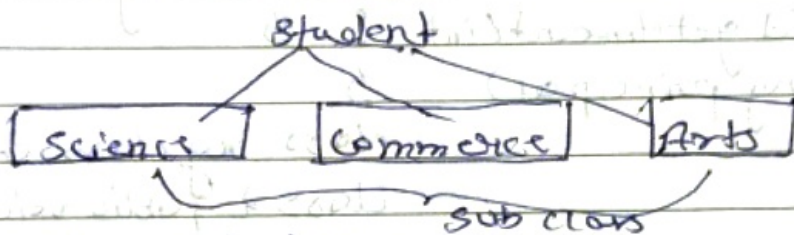 Student
Science Commerce Arts
sub class